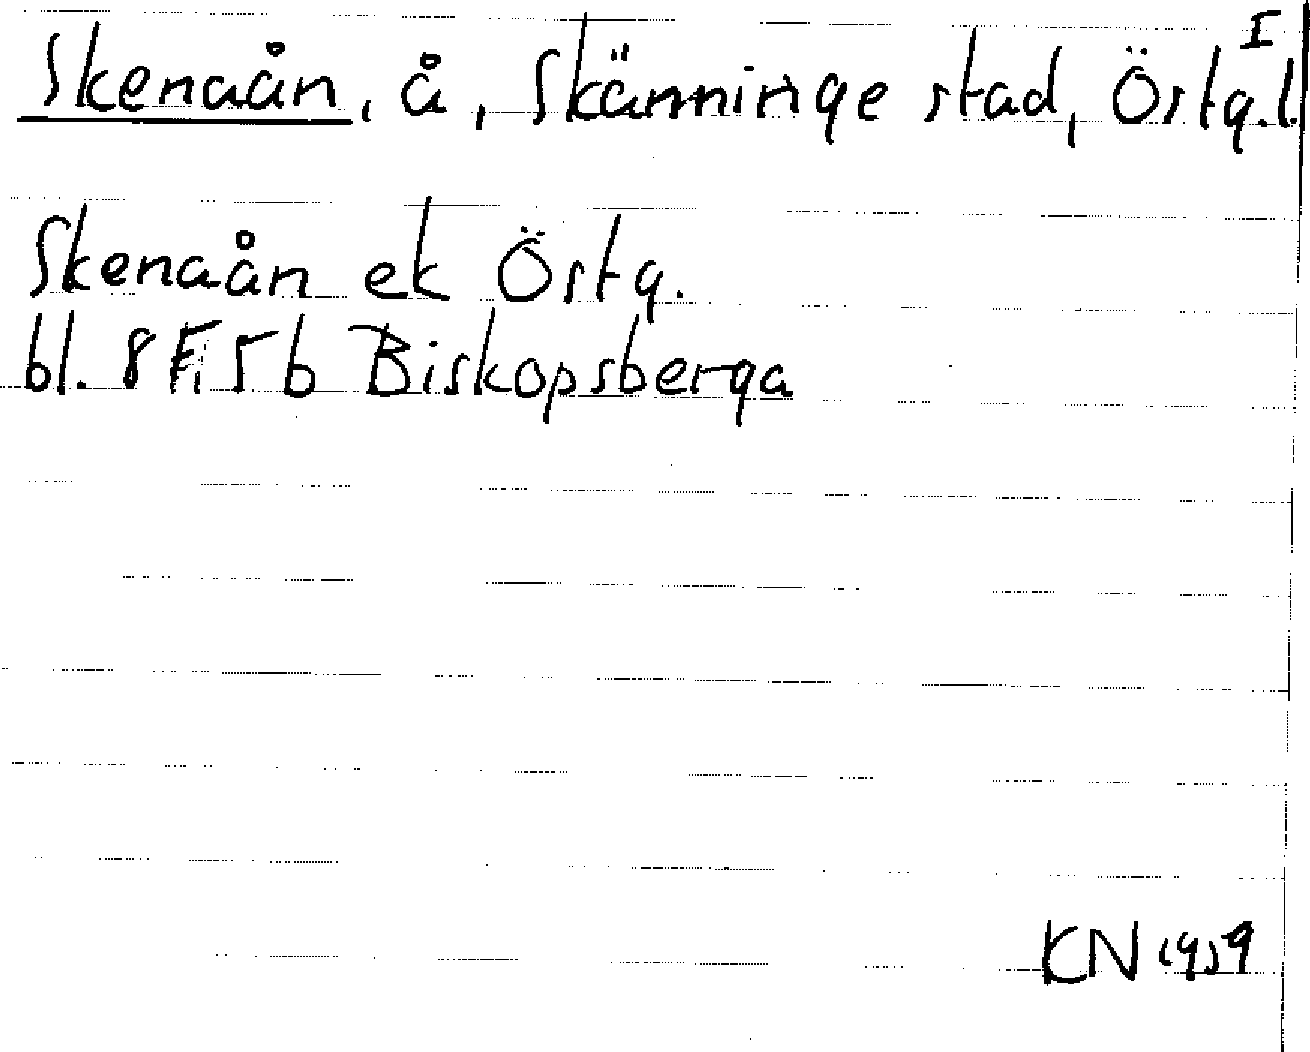 I
Skenaån, å, Skänninge stad, Östg.l.
Skenaån ek Östg.
bl. 8 F, 5 b Biskopsberga
KN